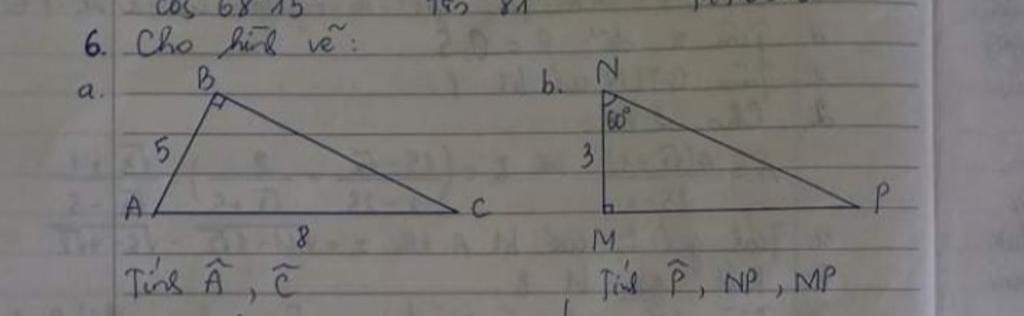 cos 68 15 tan 81
6. Cho hình vẽ:
a. B b. N
60°
5 3
A C P
8 M
Tính Â, Ĉ Tính P̂, NP, MP